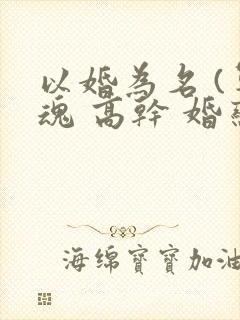 以婚為名 (
魂 高幹 婚
海绵寶寶加油